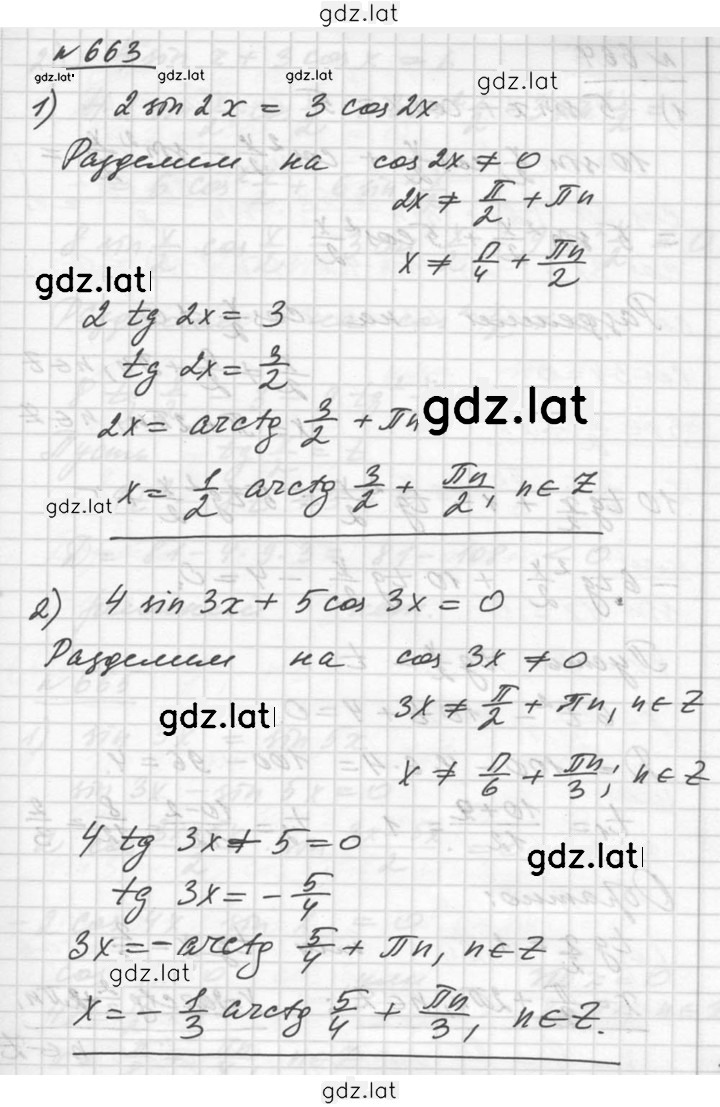 gdz.lat
№ 663
gdz.lat gdz.lat gdz.lat gdz.lat
1) 2 sin 2x = 3 cos 2x
Разделим на cos 2x ≠ 0
2x ≠ π/2 + πn
x ≠ π/4 + πn/2
gdz.lat
2 tg 2x = 3
tg 2x = 3/2
gdz.lat
2x = arctg 3/2 + πn
gdz.lat
x = 1/2 arctg 3/2 + πn/2, n ∈ Z
2) 4 sin 3x + 5 cos 3x = 0
Разделим на cos 3x ≠ 0
gdz.lat
3x ≠ π/2 + πn, n ∈ Z
x ≠ π/6 + πn/3; n ∈ Z
4 tg 3x + 5 = 0
gdz.lat
tg 3x = - 5/4
3x = - arctg 5/4 + πn, n ∈ Z
gdz.lat
x = - 1/3 arctg 5/4 + πn/3, n ∈ Z.
gdz.lat